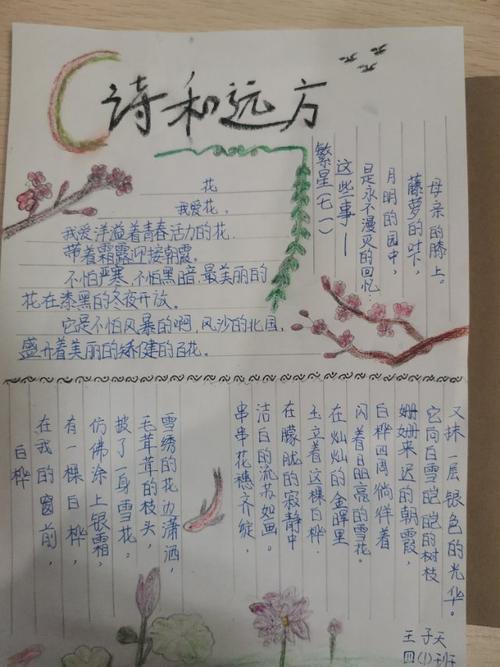 诗和远方
花
我爱花,
我爱洋溢着青春活力的花.
带着霜露迎接朝霞.
不怕严寒,不怕黑暗.最美丽的
花在漆黑的冬夜开放.
它是不怕风暴的啊,风沙的北国,
盛开着美丽的矫健的百花.
繁星(七一)
这些事——
是永不漫灭的回忆:
月明的园中
藤萝的叶下,
母亲的膝上。
白桦
在我的窗前,
有一棵白桦,
仿佛涂上银霜,
披了一身雪花。
毛茸茸的枝头,
雪绣的花边潇洒,
串串花穗齐绽,
洁白的流苏如画。
在朦胧的寂静中
玉立着这棵白桦.
在灿灿的金晖里
闪着晶亮的雪花。
白桦四周徜徉着
姗姗来迟的朝霞,
它向白雪皑皑的树枝
又抹一层银色的光华。
王子天
四(1)班